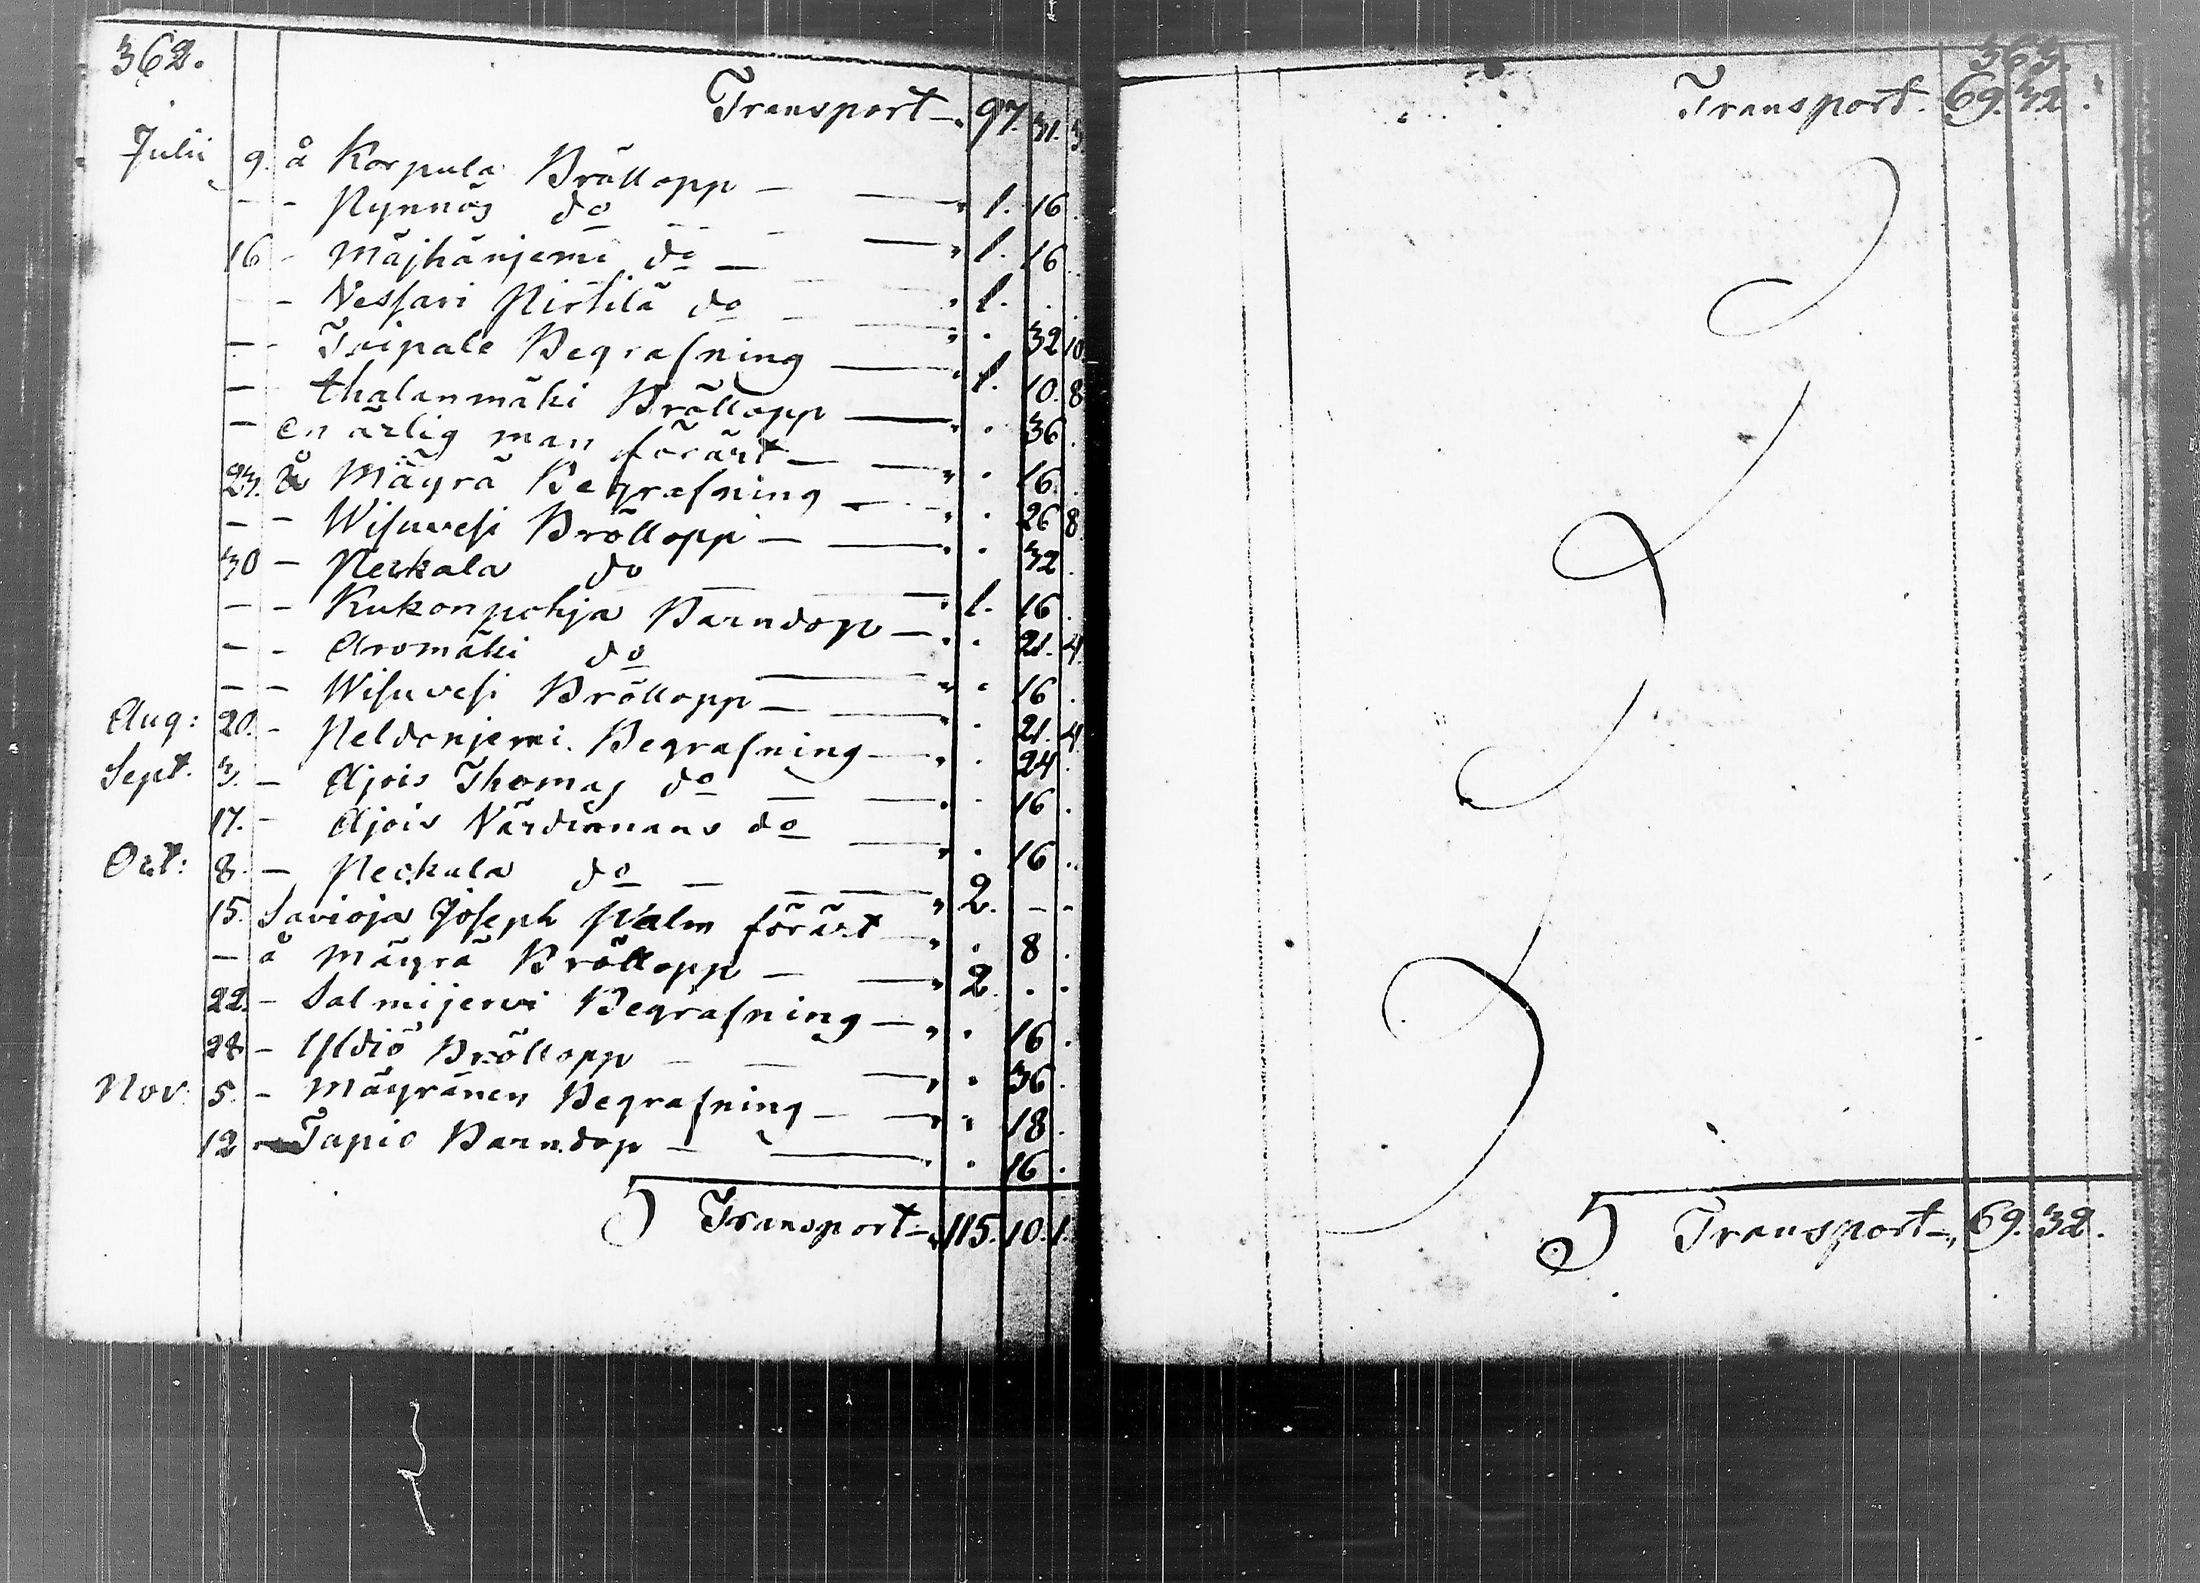 362.
Transport 97. 31. 3
Julii 9. å Korpula Bröllopp — 1. 16 .
- - Nynnäs do — 1. 16 .
16 - Mäjhänjemi do — 1. . .
- - Vessari Pirtilä do — . 32 10
- - Toipale Begrafning — 1. 10. 8
- thalanmäki Bröllopp — . 36 .
- en ärlig man förärt — . 16. .
23. å Mäyrä Begrafning — . 26 8
- - Wisuvesi Bröllopp — . 32 .
30 - Peckala do — 1. 16 .
- - Kukonpohja Barndop — . 21. 4.
- - Aromäki do — . 16 .
- - Wisuvesi Bröllopp — . 21. 4
Aug: 20. - Peldonjemi Begrafning — . 24 .
Sept. 3. - Ajois Thomas do — . 16 .
17. - Ajois Närdinnans do — . 16 .
Oct: 8. - Peckala do — 2. - -
15. Savioja Joseph Palm förärt . 8 .
- å Mäyrä Bröllopp — 2 . .
22. - Salmijervi Begrafning — . 16 .
28 - Yldiö Bröllopp — . 36 .
Nov. 5. - Mäyränen Begrafning — . 18 .
12 - Tapio Barndop — . 16 .
Transport 115. 10. 1.
363.
Transport. 69. 32.
Transport 69. 32.